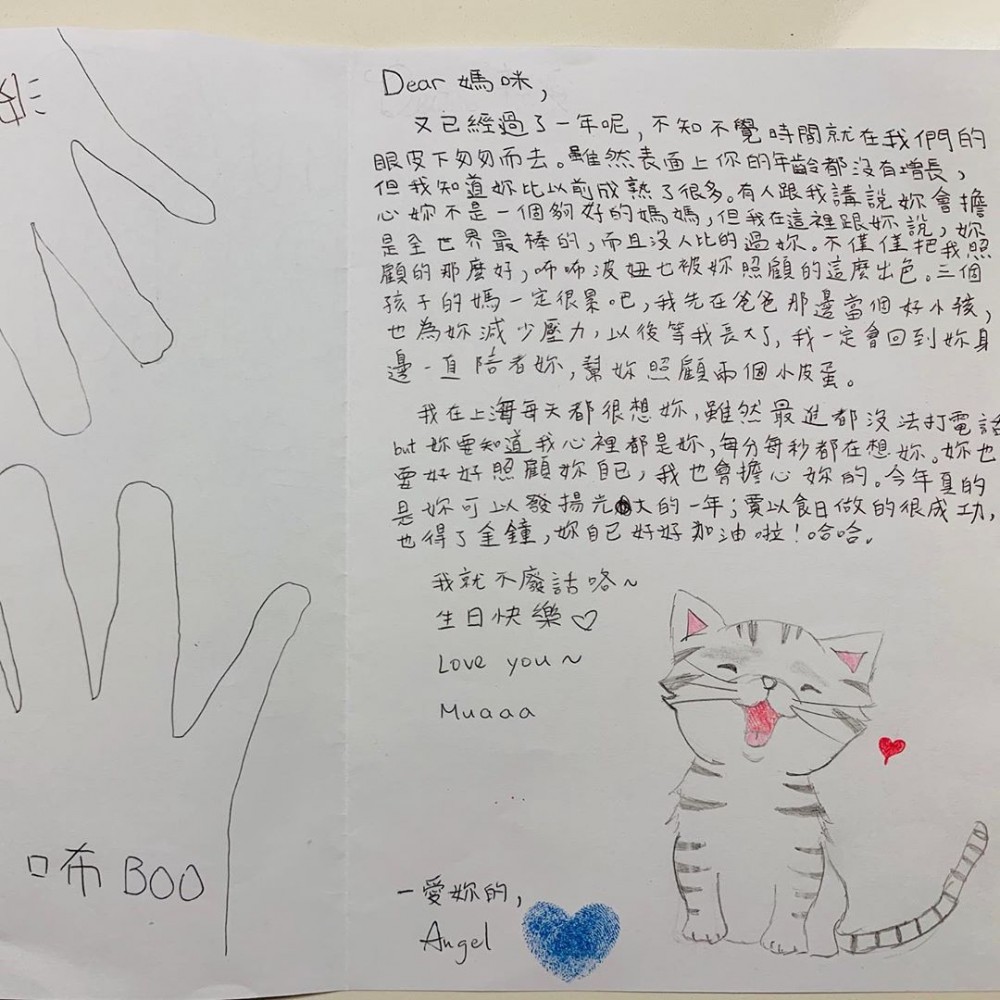 Dear 媽咪,
又已經過了一年呢,不知不覺時間就在我們的
眼皮下匆匆而去。雖然表面上你的年齡都沒有增長,
但我知道妳比以前成熟了很多。有人跟我講說妳會擔
心妳不是一個夠好的媽媽,但我在這裡跟妳說,妳
是全世界最棒的,而且沒人比的過妳。不僅僅把我照
顧的那麼好,咘咘波妞也被妳照顧的這麼出色。三個
孩子的媽一定很累吧,我先在爸爸那邊當個好小孩,
也為妳減少壓力,以後等我長大了,我一定會回到妳身
邊一直陪著妳,幫妳照顧兩個小皮蛋。
我在上海每天都很想妳,雖然最近都沒法打電話
but 妳要知道我心裡都是妳,每分每秒都在想妳。妳也
要好好照顧妳自己,我也會擔心妳的。今年真的
是妳可以發揚光大的一年;賈以食日做的很成功,
也得了金鐘,妳自己好好加油啦!哈哈。
我就不廢話咯~
生日快樂♡
Love you~
Muaaa
一愛妳的,
Angel
咘 BOO